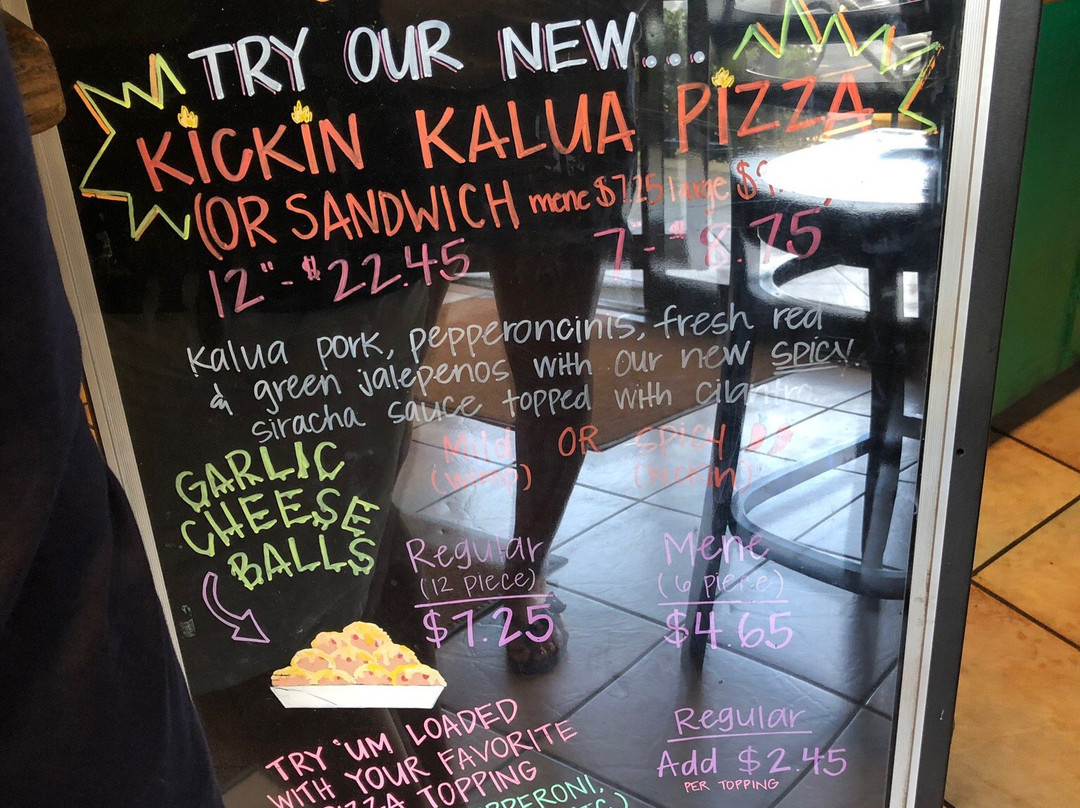 TRY OUR NEW...
KICKIN KALUA PIZZA
(OR SANDWICH mene $7.25 large
12" - $22.45 7 - $8.75
Kalua pork, pepperoncinis, fresh red
& green jalepenos with our new SPICY
siracha sauce topped with cilantro
Mild OR SPICY
(wimp) (kickin)
GARLIC
CHEESE
BALLS
Regular
(12 piece)
$7.25
Mene
(6 piece)
$4.65
TRY 'UM LOADED
WITH YOUR FAVORITE
PIZZA TOPPING
Regular
Add $2.45
PER TOPPING